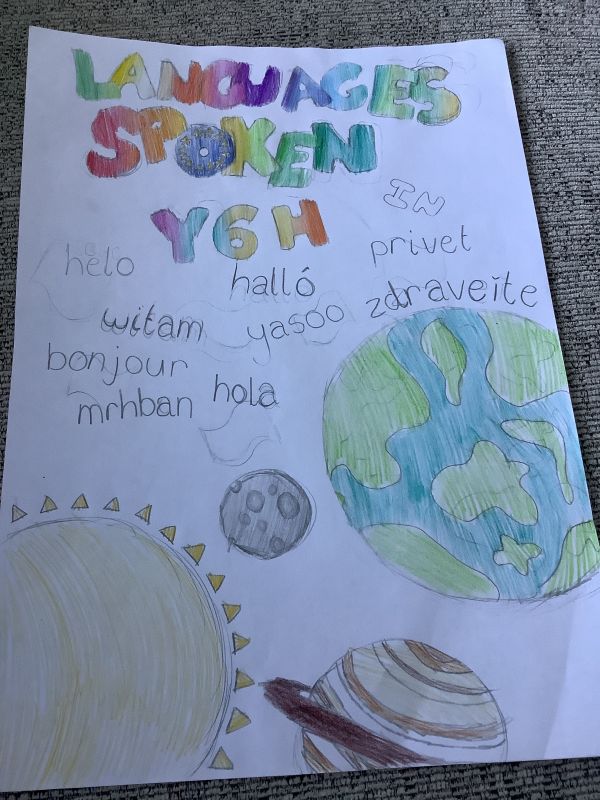 LANGUAGES
SPOKEN
IN
Y6H
helo
halló
privet
witam
yasoo
zdraveite
bonjour
hola
mrhban